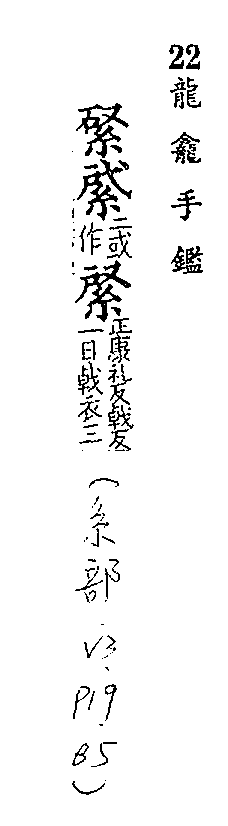 22 龍龕手鑑
二或作綮正康礼反戟支一曰戟衣三
(糸部.V3.P19.B5)